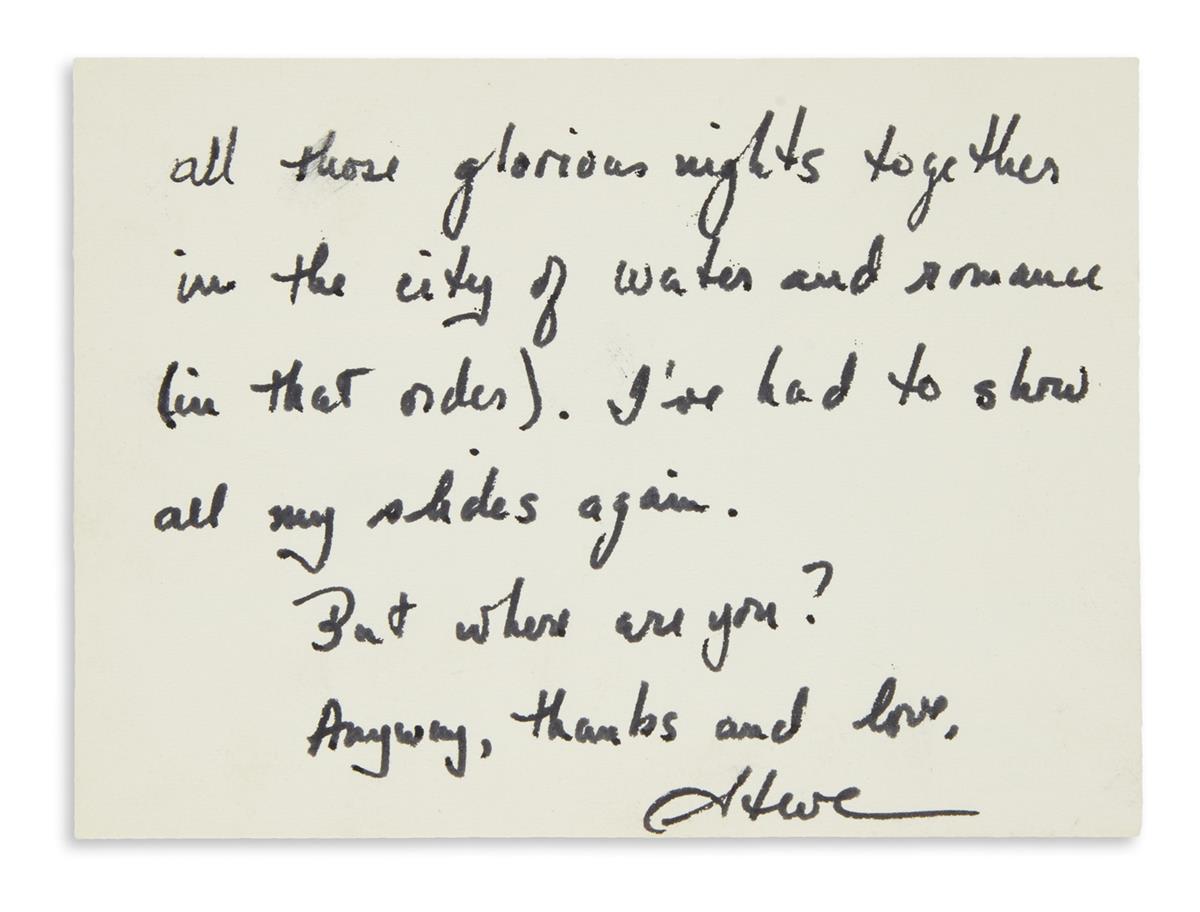 all those glorious nights together
in the city of water and romance
(in that order). I've had to show
all my slides again.
But where are you?
Anyway, thanks and love,
Steve